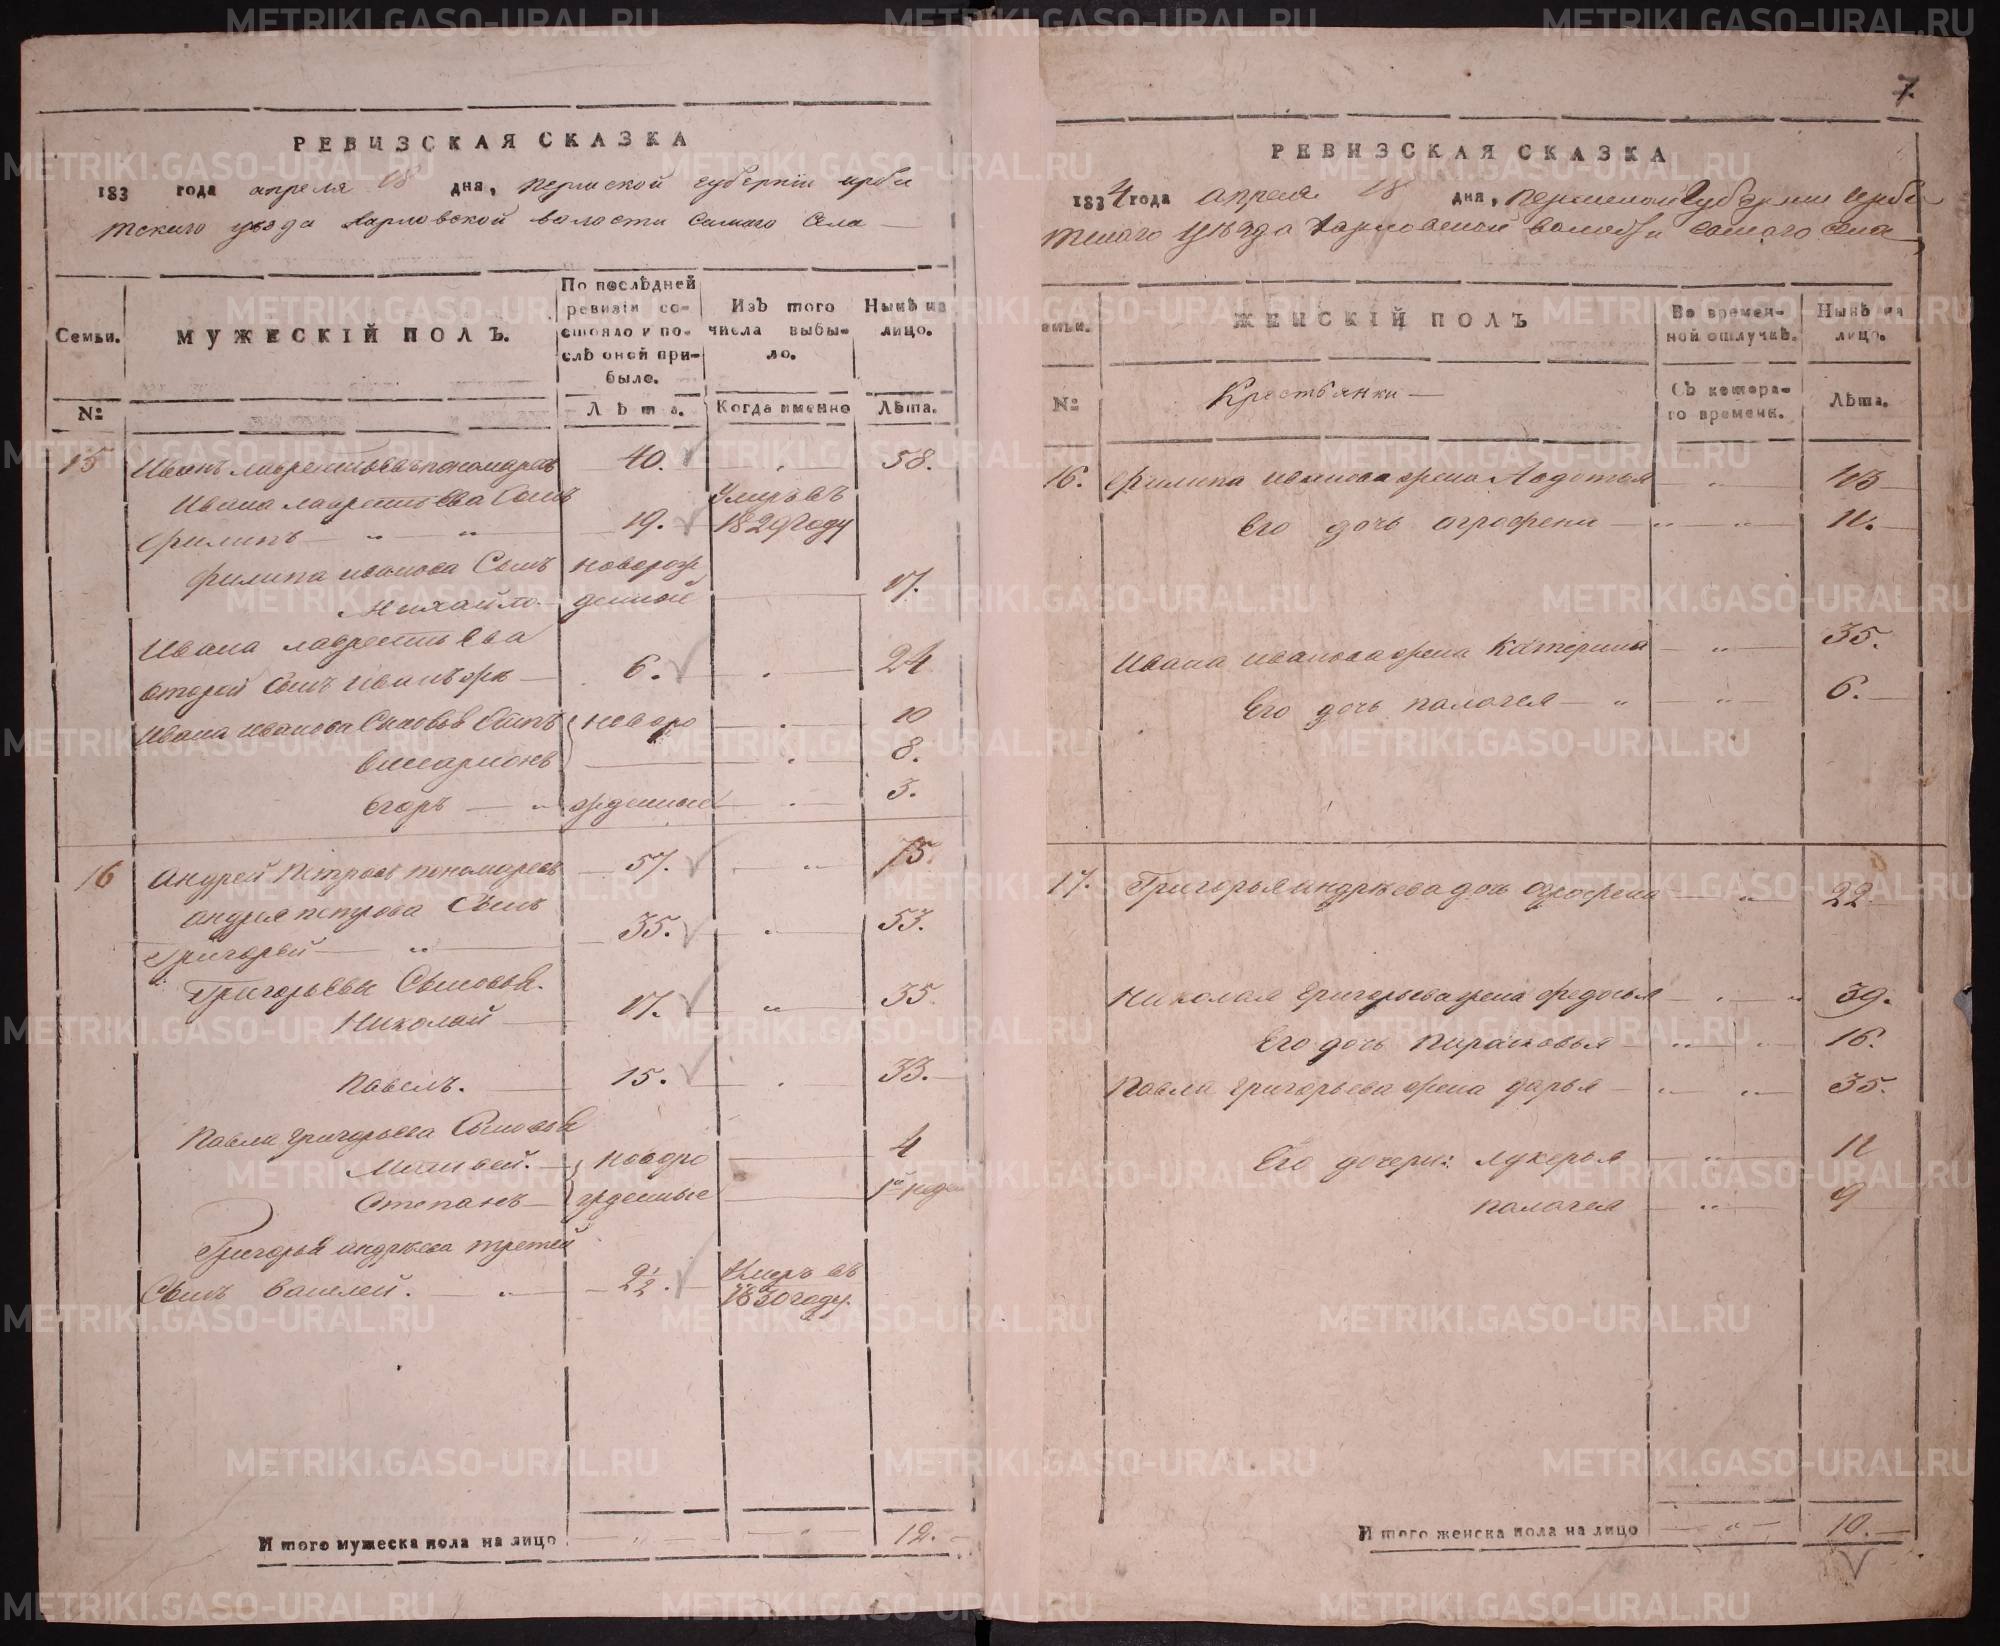 РЕВИЗСКАЯ СКАЗКА
183 года апреля 18 дня, пермской губернiи ирби
тского уезда Харловской волости Самаго Села
Семьи.
МУЖЕСКІЙ ПОЛЪ.
По послѣдней ревизіи состояло и послѣ оной прибыло.
Изъ того числа выбыло.
Нынѣ на лицо.
№
Лѣта.
Когда именно
Лѣта.
15 Иванъ лаврентьевъ пономаревъ 40. 58.
Ивана лаврентьева Сынъ Умиръ въ
Филипъ 19. 1829 году
филипа иванова Сынъ новорож
Михайло денной 17.
Ивана лаврентьева
второй Сынъ иванъ же 6. 24
Ивана иванова Сыновья новоро 10
виссарионъ 8.
Егоръ жденные 3.
16 Андрей Петровъ пономаревъ 57. 75.
андрея петрова Сынъ
Григорей 35. 53.
Григорьевы Сыновья.
Николай 17. 35.
Павелъ. 15. 33.
Павла григорьева Сыновья
Матвей. новоро 4
Степанъ жденные
Григорья андреева третей
Сынъ василей. 2½. Умеръ въ
1830 году.
И того мужеска пола на лицо 12.
7.
РЕВИЗСКАЯ СКАЗКА
1834 года апреля 18 дня, пермской Губернии Ирби
тского уезда Харловской волости самого села
Семьи.
ЖЕНСКІЙ ПОЛЪ
Во временной отлучкѣ.
Нынѣ на лицо.
№
Крестьянки
Съ котораго времени.
Лѣта.
16. Филипа иванова жена Авдотья 43
Его дочь огрофена 11.
Ивана иванова жена Катерина 35.
Его дочь палагея 6.
17. Григорья андреева дочь огрофена 22
Николая григорьева жена федосья 39.
Его дочь парасковья 16.
Павла григорьева жена дарья 35.
Его дочери: лукерья 12
палагея 9
И того женска пола на лицо 10.
METRIKI.GASO-URAL.RU